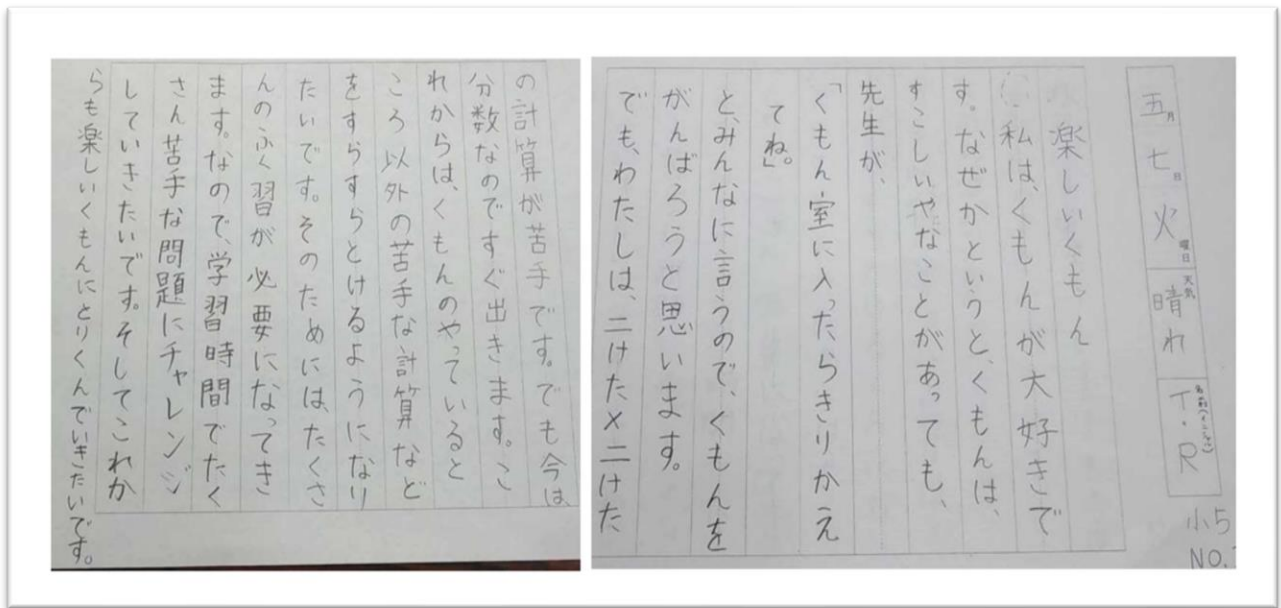 五月七日火曜日 天気 晴れ T・R
小5
NO.
楽しいくもん
私は、くもんが大好きで
す。なぜかというと、くもんは、
すこしいやなことがあっても、
先生が、
「くもん室に入ったらきりかえ
てね。」
と、みんなに言うので、くもんを
がんばろうと思います。
でも、わたしは、二けた×二けた
の計算が苦手です。でも今は、
分数なのですぐ出きます。こ
れからは、くもんのやっていると
ころ以外の苦手な計算など
をすらすらとけるようになり
たいです。そのためには、たくさ
んのふく習が必要になってき
ます。なので、学習時間でたく
さん苦手な問題にチャレンジ
していきたいです。そしてこれか
らも楽しいくもんにとりくんでいきたいです。